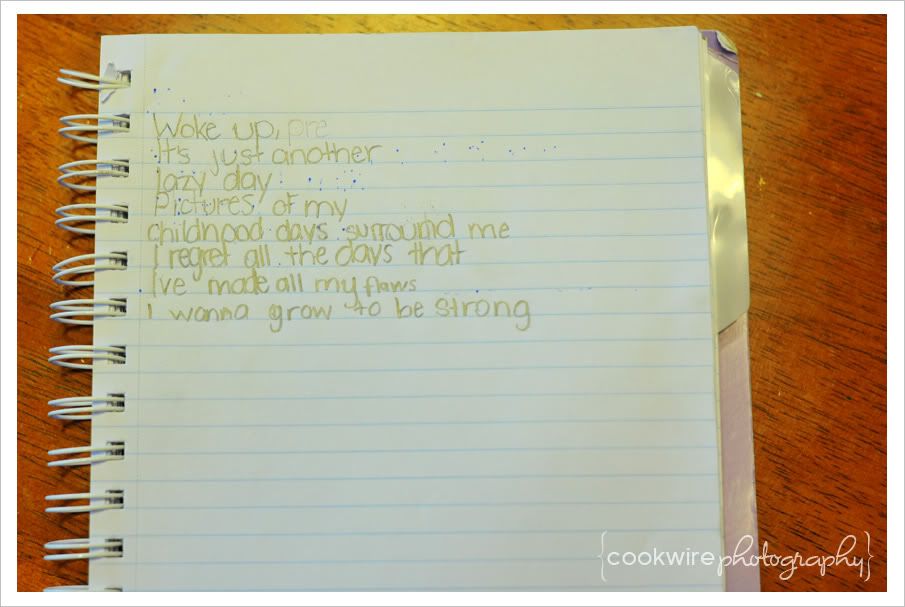 Woke up, pre
It's just another
lazy day
Pictures of my
childhood days surround me
I regret all the days that
I've made all my flaws
I wanna grow to be strong
{cookwire photography}